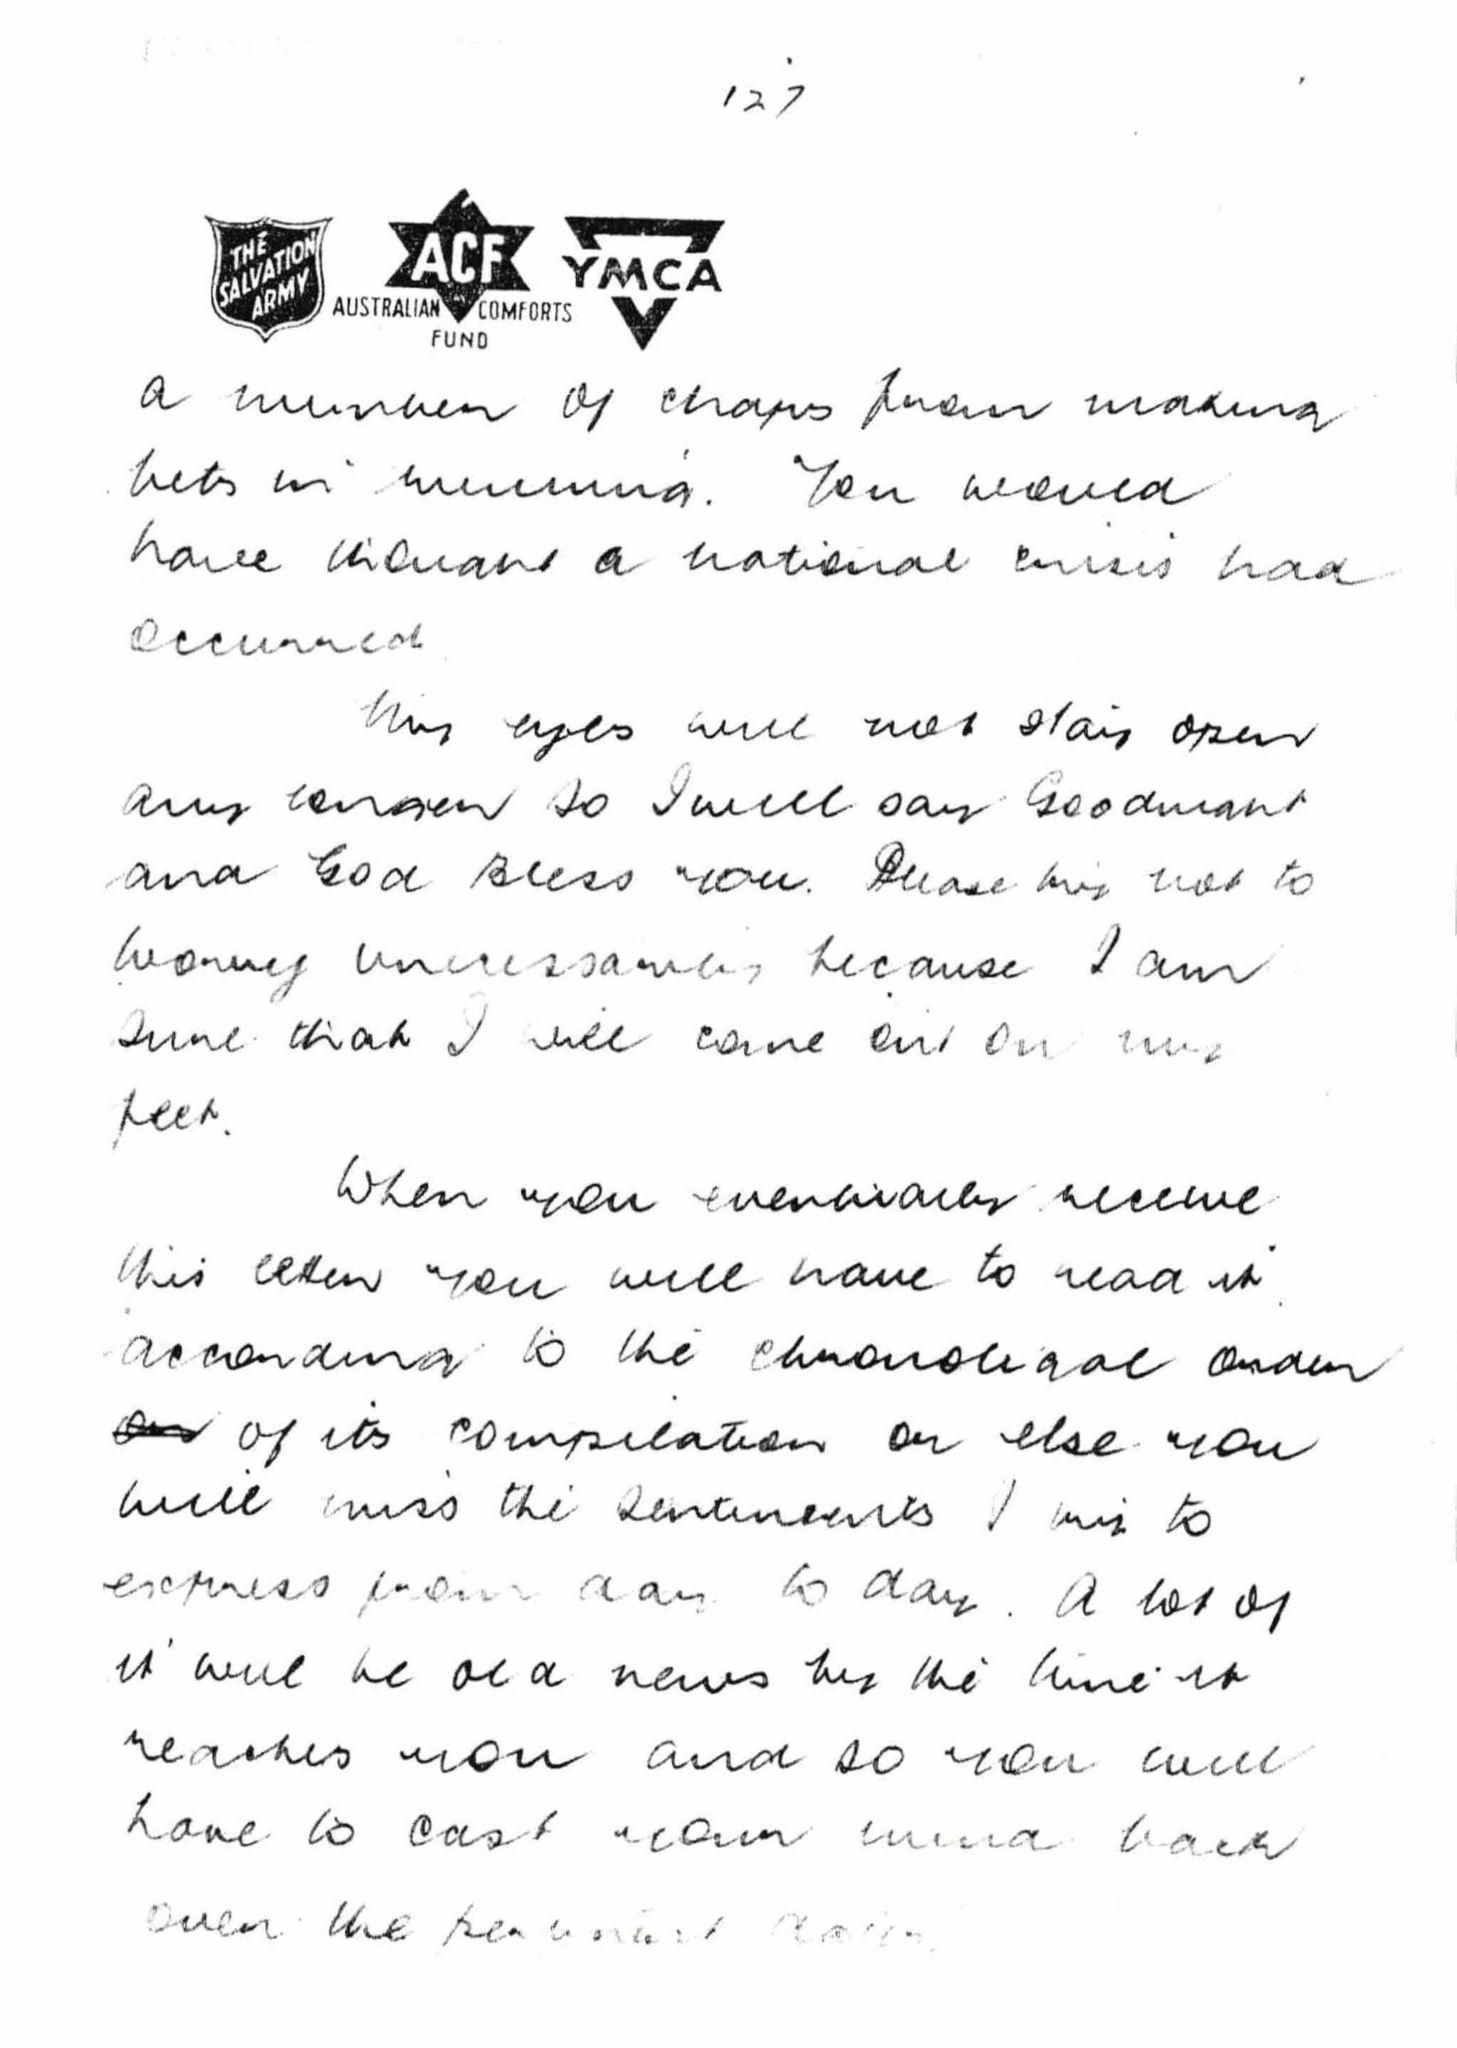 127
THE SALVATION ARMY
ACF
AUSTRALIAN COMFORTS FUND
YMCA
a number of chaps from making
bets in. You would
have thought a national crisis had
occurred
My eyes will not stay open
any longer so I will say Goodnight
and God Bless you. Please try not to
worry unecessarily because I am
sure that I will come out on my
feet.
When you eventually receive
this letter you will have to read it
according to the chronoligal order
of its compilation or else you
will miss the sentiments I try to
express from day to day. A lot of
it will be old news by the time it
reaches you and so you will
have to cast your mind back
over the dates